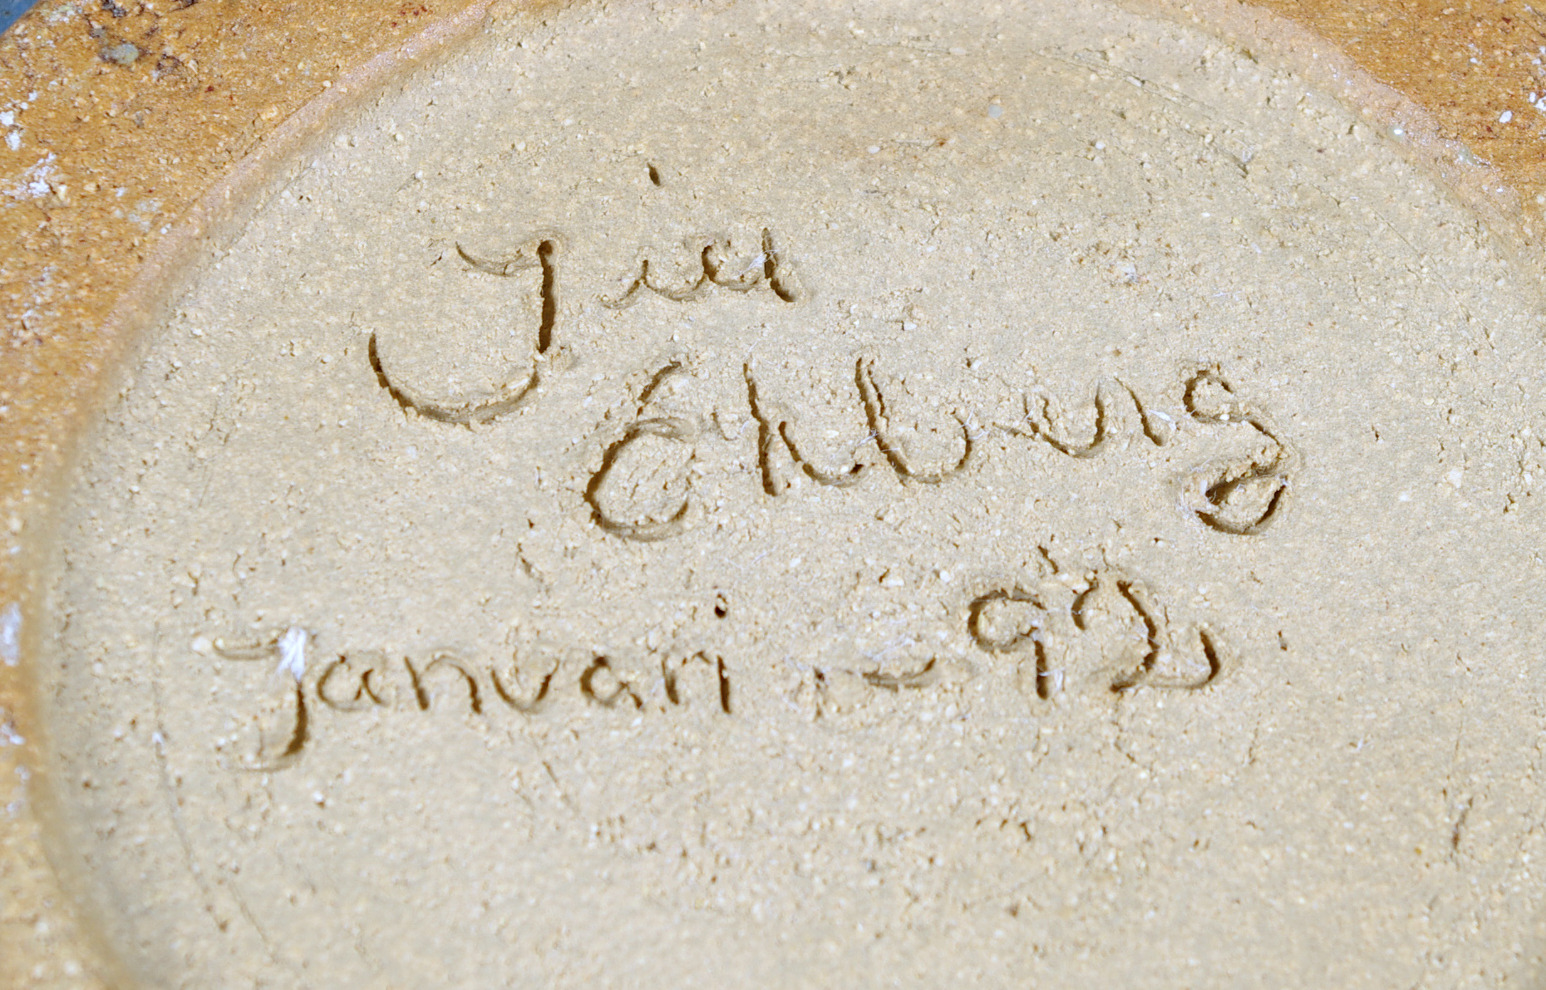 Jia
Ekberg
Januari - 92